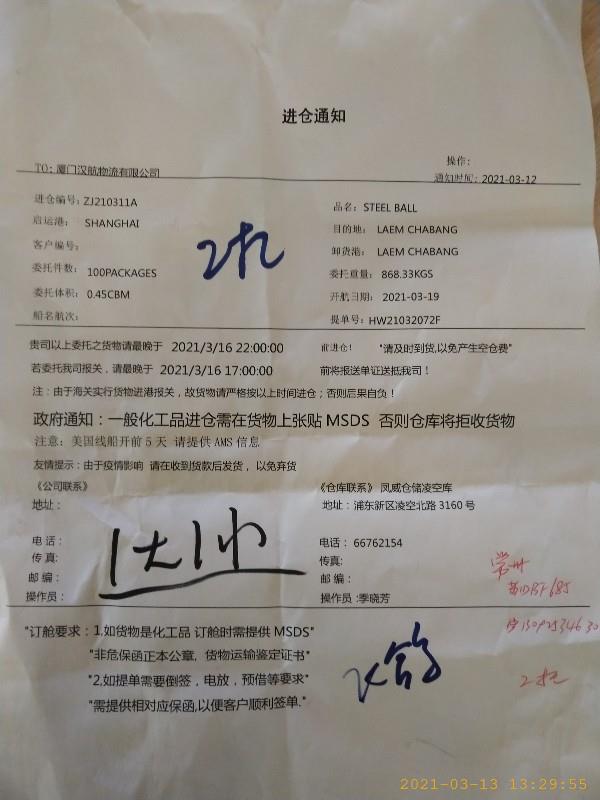 进仓通知
TO: 厦门汉航物流有限公司
操作:
通知时间: 2021-03-12
进仓编号: ZJ210311A
品名: STEEL BALL
启运港: SHANGHAI
目的地: LAEM CHABANG
客户编号:
卸货港: LAEM CHABANG
委托件数: 100PACKAGES
委托重量: 868.33KGS
委托体积: 0.45CBM
开航日期: 2021-03-19
船名航次:
提单号: HW21032072F
2托
贵司以上委托之货物请最晚于 2021/3/16 22:00:00 前进仓! "请及时到货,以免产生空仓费"
若委托我司报关，请最晚于 2021/3/16 17:00:00 前将报送单证送抵我司！
注：由于海关实行货物进港报关，故货物请严格按以上时间进仓；否则后果自负！
政府通知：一般化工品进仓需在货物上张贴 MSDS 否则仓库将拒收货物
注意：美国线船开前5天 请提供 AMS 信息
友情提示：由于疫情影响 请在收到货款后发货，以免弃货
《公司联系》
《仓库联系》 凤威仓储凌空库
地址：
地址：浦东新区凌空北路 3160 号
电话：
电话： 66762154
传真:
传真:
邮编：
邮编：
操作员：
操作员 :季晓芳
常州
"订舱要求：1.如货物是化工品 订舱时需提供 MSDS"
"非危保函正本公章, 货物运输鉴定证书"
"2.如提单需要倒签，电放，预借等要求"
"需提供相对应保函,以便客户顺利签单."
2托
2021-03-13 13:29:55